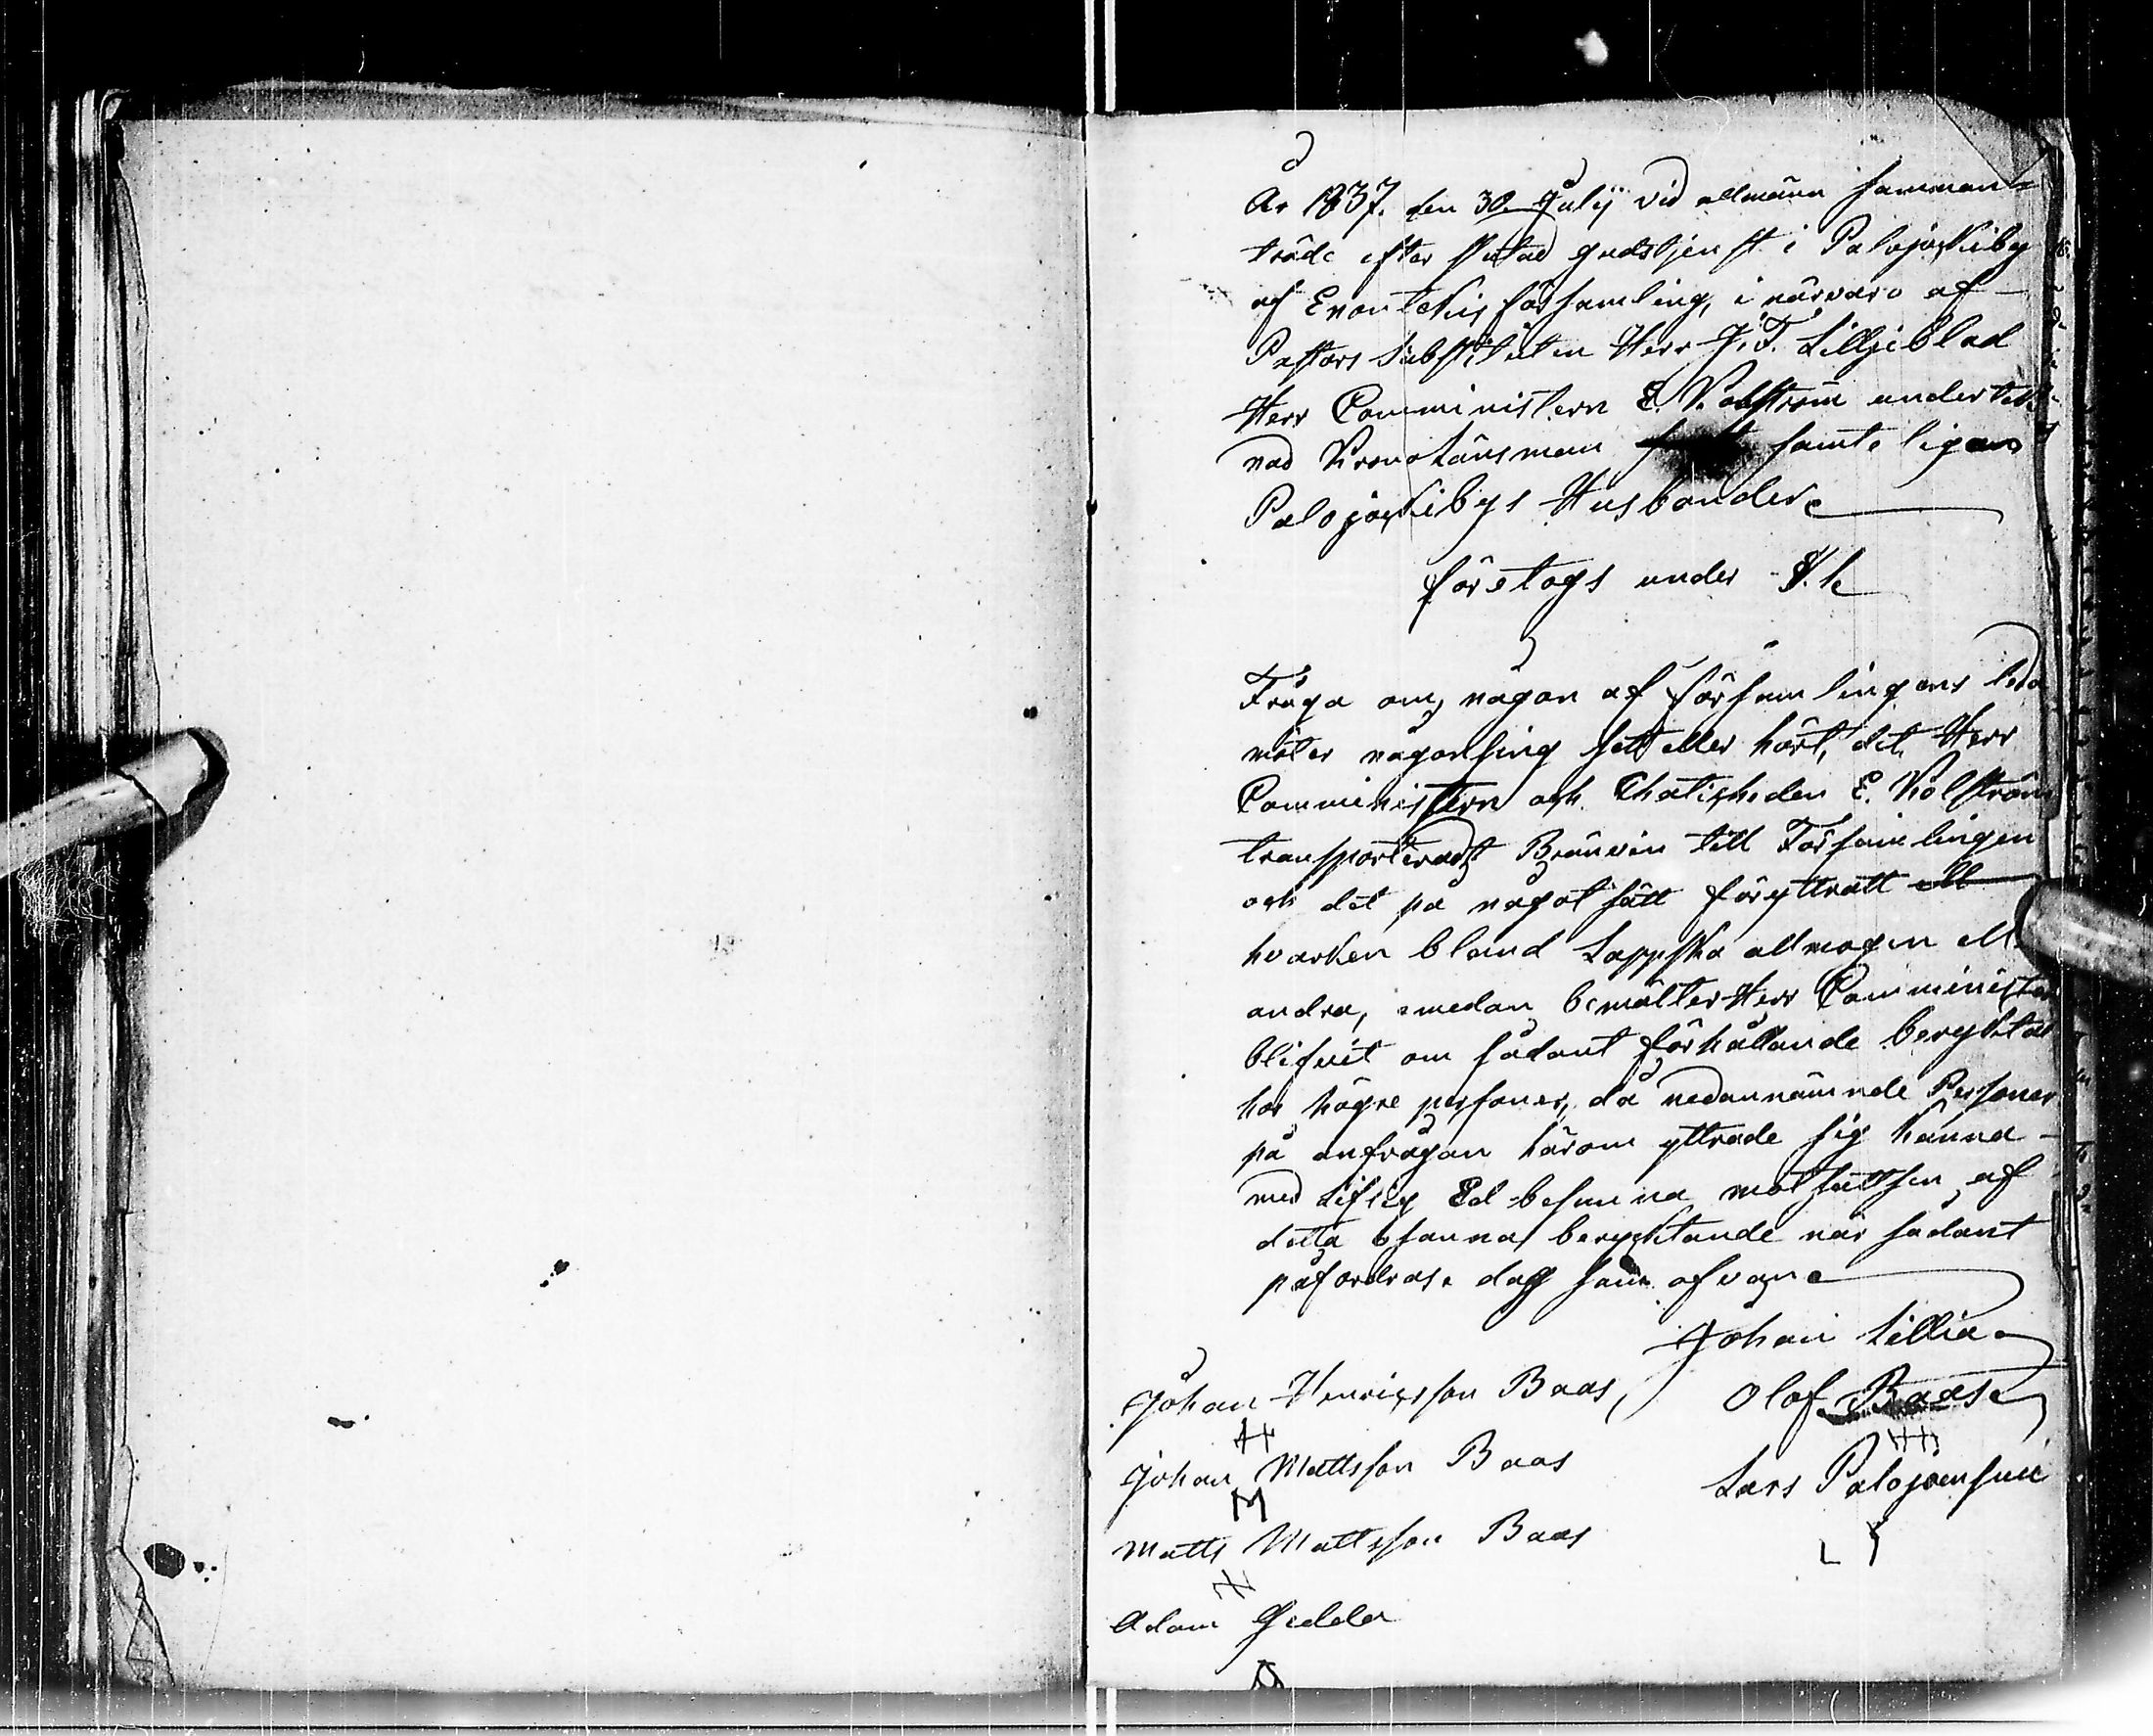 År 1837. den 30. Julÿ vid allmänn samman=
träde efter slutad gudstjenst i Palojockiby
af Enontekis församling, i närvaro af
Pastors Substituten Herr J. F. Lilljeblad
Herr Comministern E. Kolström underteck
nad Krono Länsman samt
Palojockibys Husbönder
företogs under §. 1
Fråga om någon af församlingens leda
möter någonsing sett eller hört, det Herr
Comministern och E. Kolström
transporteradt Bränvin till Församlingen
och det på något sätt föryttratt
hvarken bland Lappska allmogen ell
andra, emedan bemälter Herr Comminister
blifvit om sådant förhållande beryktad
hos högre personer, då nedannämnde Personer
på anfrågan härom yttrade sig kunna
med Liflig Ed besanna motsattsen af
detta osanna beryktande när sådant
påfordras. dag som ofvan
Johan Lillia
Johan Henricsson Baas, Olof Baas
H
Johan Mattsson Baas Lars Palojoensuu
M
Matts Mattsson Baas L
Adam Gedda